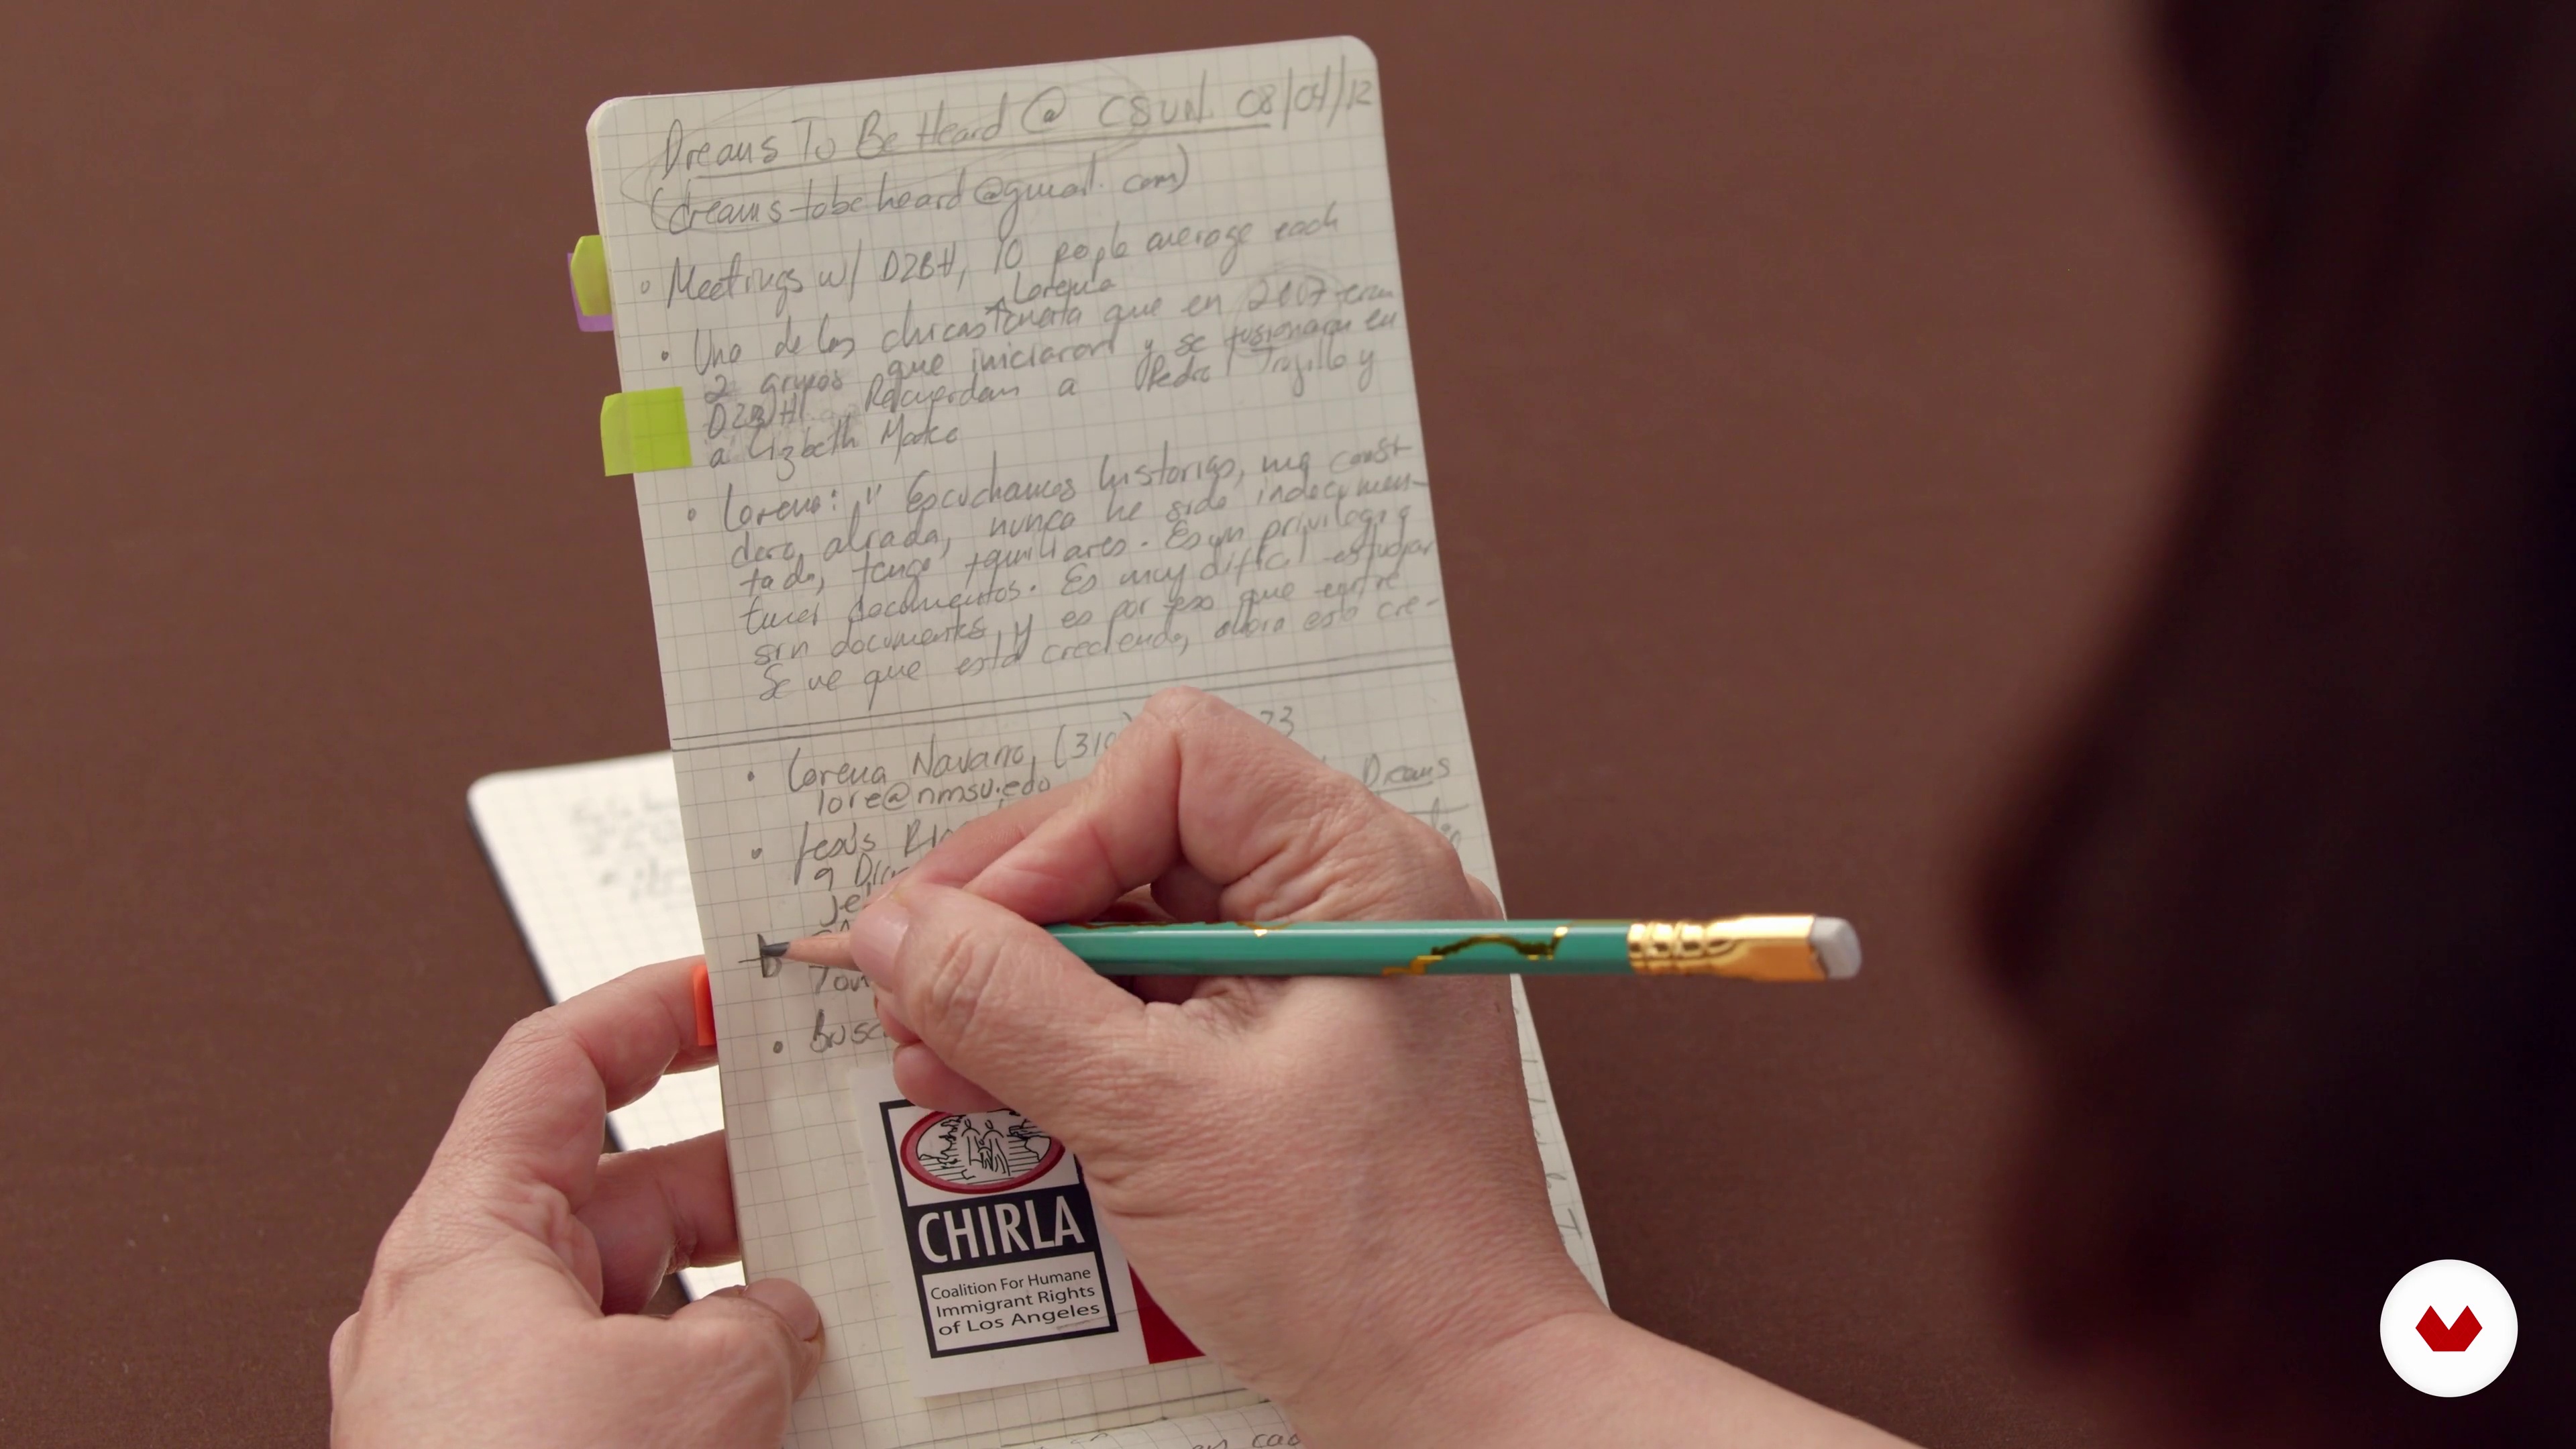 Dreams To Be Heard @ CSUN. 08/04/12
(dreamstobeheard@gmail.com)
Meetings w/ D2BH, 10 people average each
Lorena
Una de las chicas cuenta que en 2007 eran
2 grupos que iniciaron y se fusionaron en
D2BH. Recuerdan a Pedro Trujillo y
a Lizbeth Mateo
Lorena: " Escuchamos historias, me consi-
dero aliada, nunca he sido indocumen-
tada, tengo familiares. Es un privilegio
tener documentos. Es muy difícil estudiar
sin documentos, y es por eso que entré
Se ve que está creciendo, ahora está cre-
Lorena Navarro, (310) 73
lore@nmsu.edu Dreams
Jesús
Je
Tou
Busc
CHIRLA
Coalition For Humane
Immigrant Rights
of Los Angeles
en cao